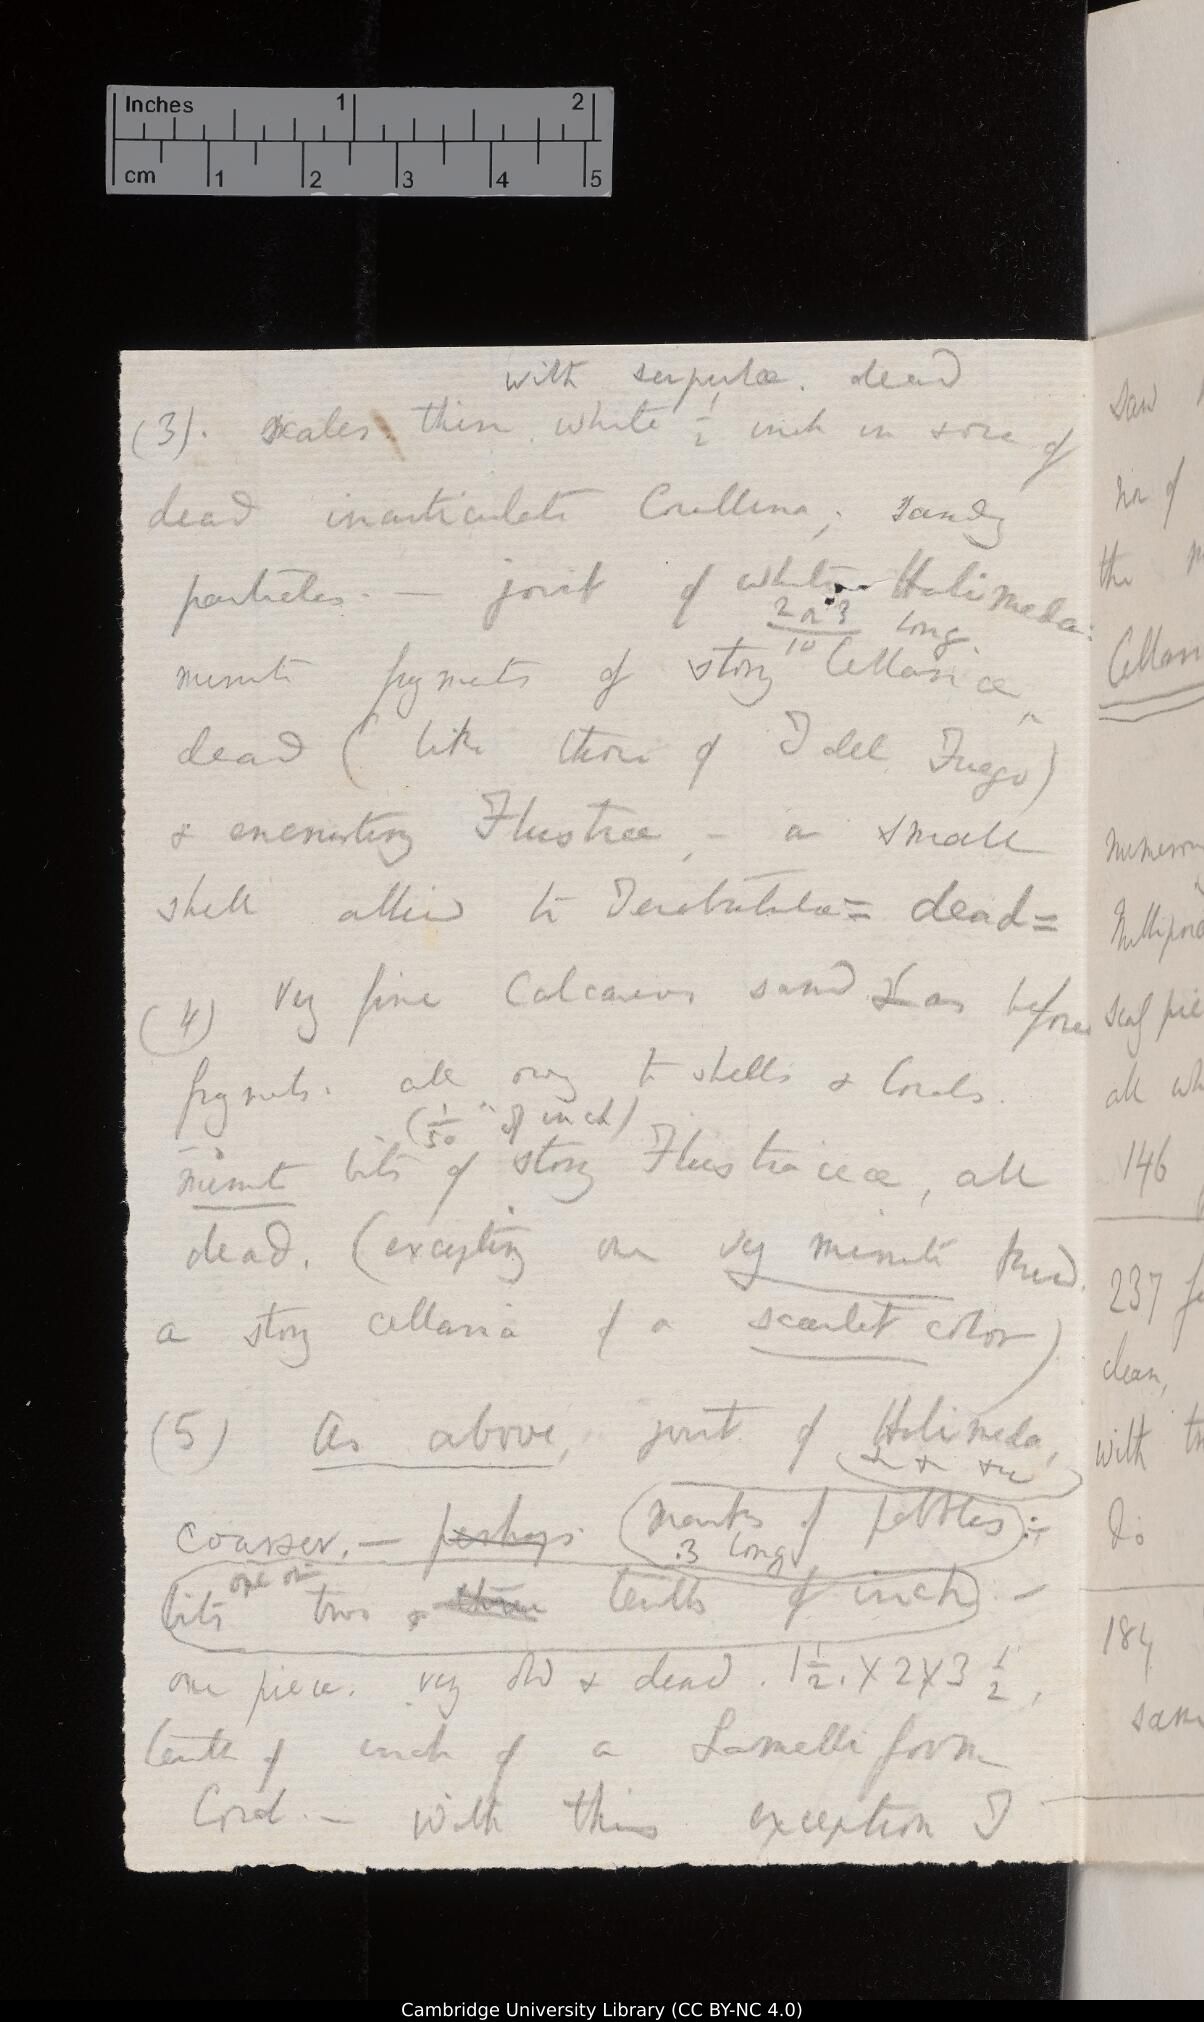 Inches 1 2
cm 1 2 3 4 5
with serpulæ. dead
(3). scales thin white 1/2 inch in size of
dead inarticulate Corallina; sandy
particles. — joint of white Halimeda:
2 or 3/10 long.
minute fragments of stony Cellariæ
dead (like those of T del Fuego)
& encrusting Flustræ, — a small
shell allied to Terebratula = dead =
(4) Very fine Calcareous sand & as before
fragments. all owing to shells & Corals.
(1/50th of inch)
minute bits of stony Flustraceæ, all
dead. (excepting one very minute
a stony cellaria of a scarlet color)
(5) As above, joint of Halimeda,
coarser. — perhaps (marks of pebbles)
.3 long
one or
bits two & three tenths of inch. —
one piece. very old & dead. 1 1/2. X 2 X 3 1/2,
tenth of inch of a Lamelliform
Coral. — with this exception I
saw
no of
the
Cellari
numerous
Nullipora
all wh
146
237 fe
clean,
with tw
Do
184
sam
Cambridge University Library (CC BY-NC 4.0)